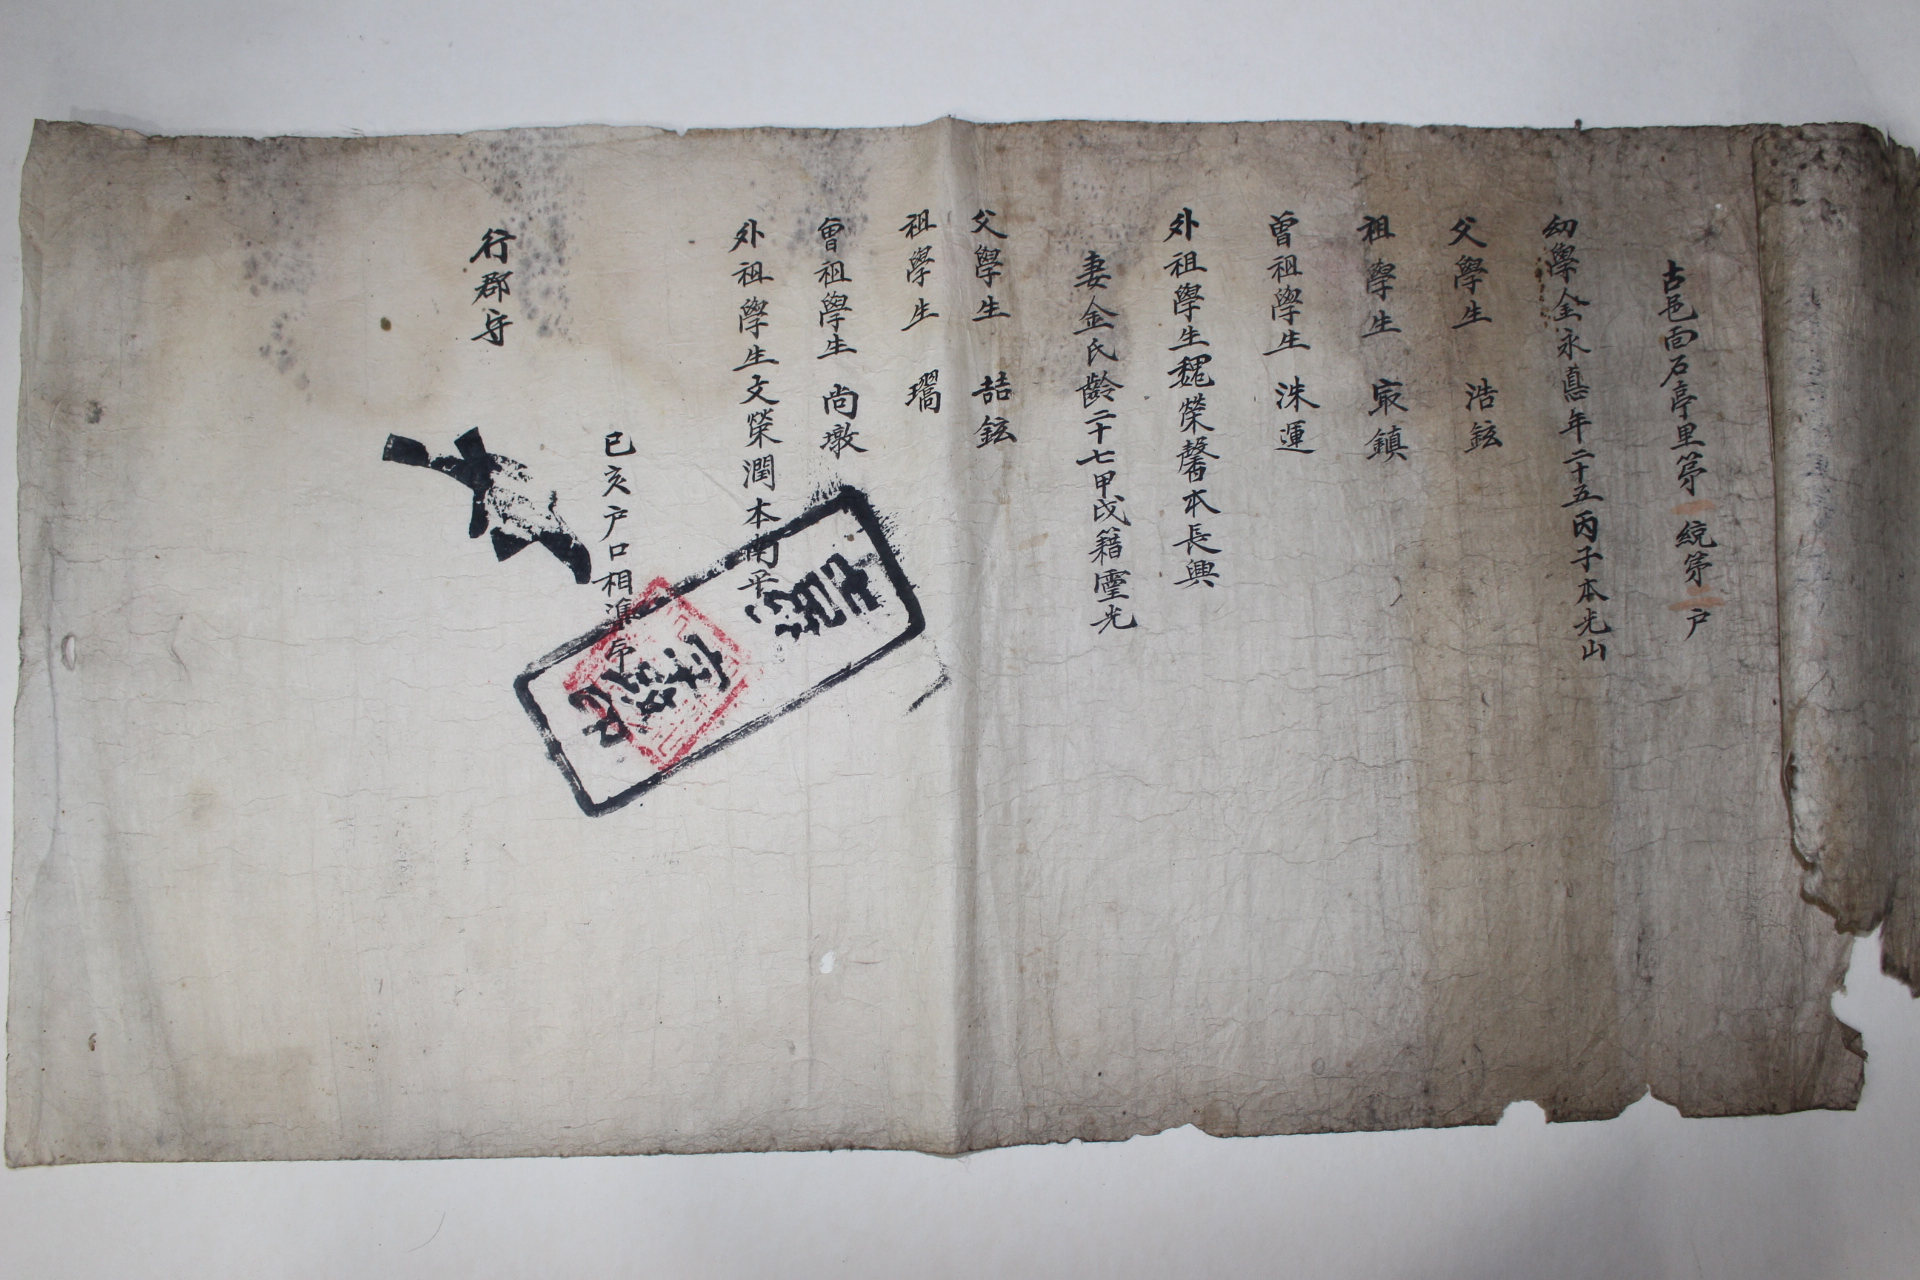 古邑面石亭里第一統第二戶
幼學金永悳年二十五丙子本光山
父學生 浩鉉
祖學生 㝡鎮
曾祖學生 洙運
外祖學生魏榮馨本長興
妻金氏齡二十七甲戌籍靈光
父學生 喆鉉
祖學生
曾祖學生 尚墩
外祖學生文榮潤本南平
己亥戶口相準印
行郡守